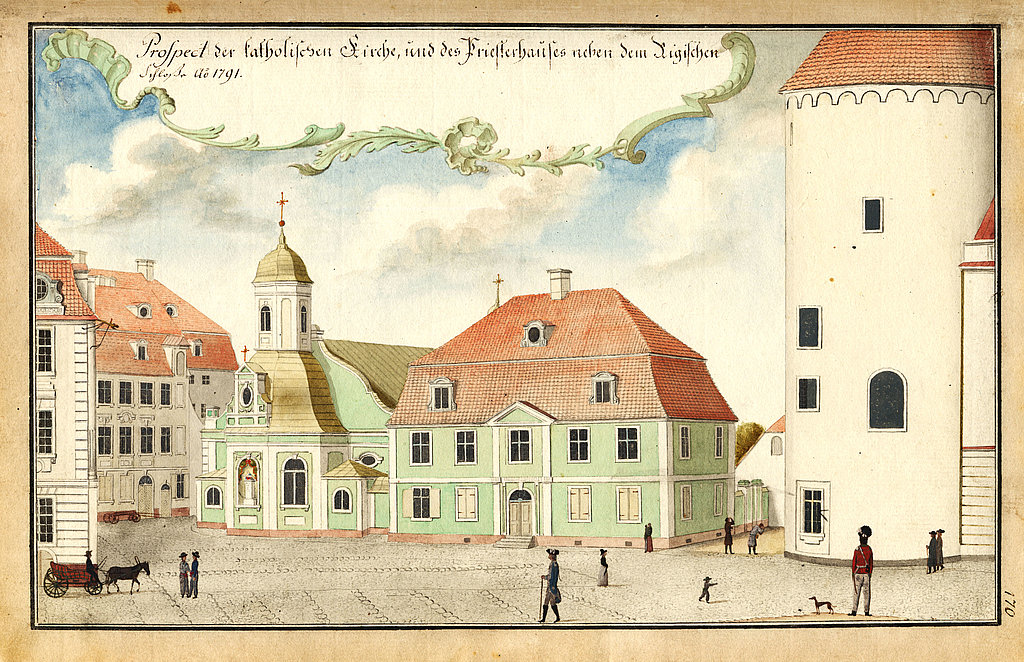 Prospect der katholischen Kirche, und des Priesterhauses neben dem Rigischen
Schlosse Aō 1791.
170